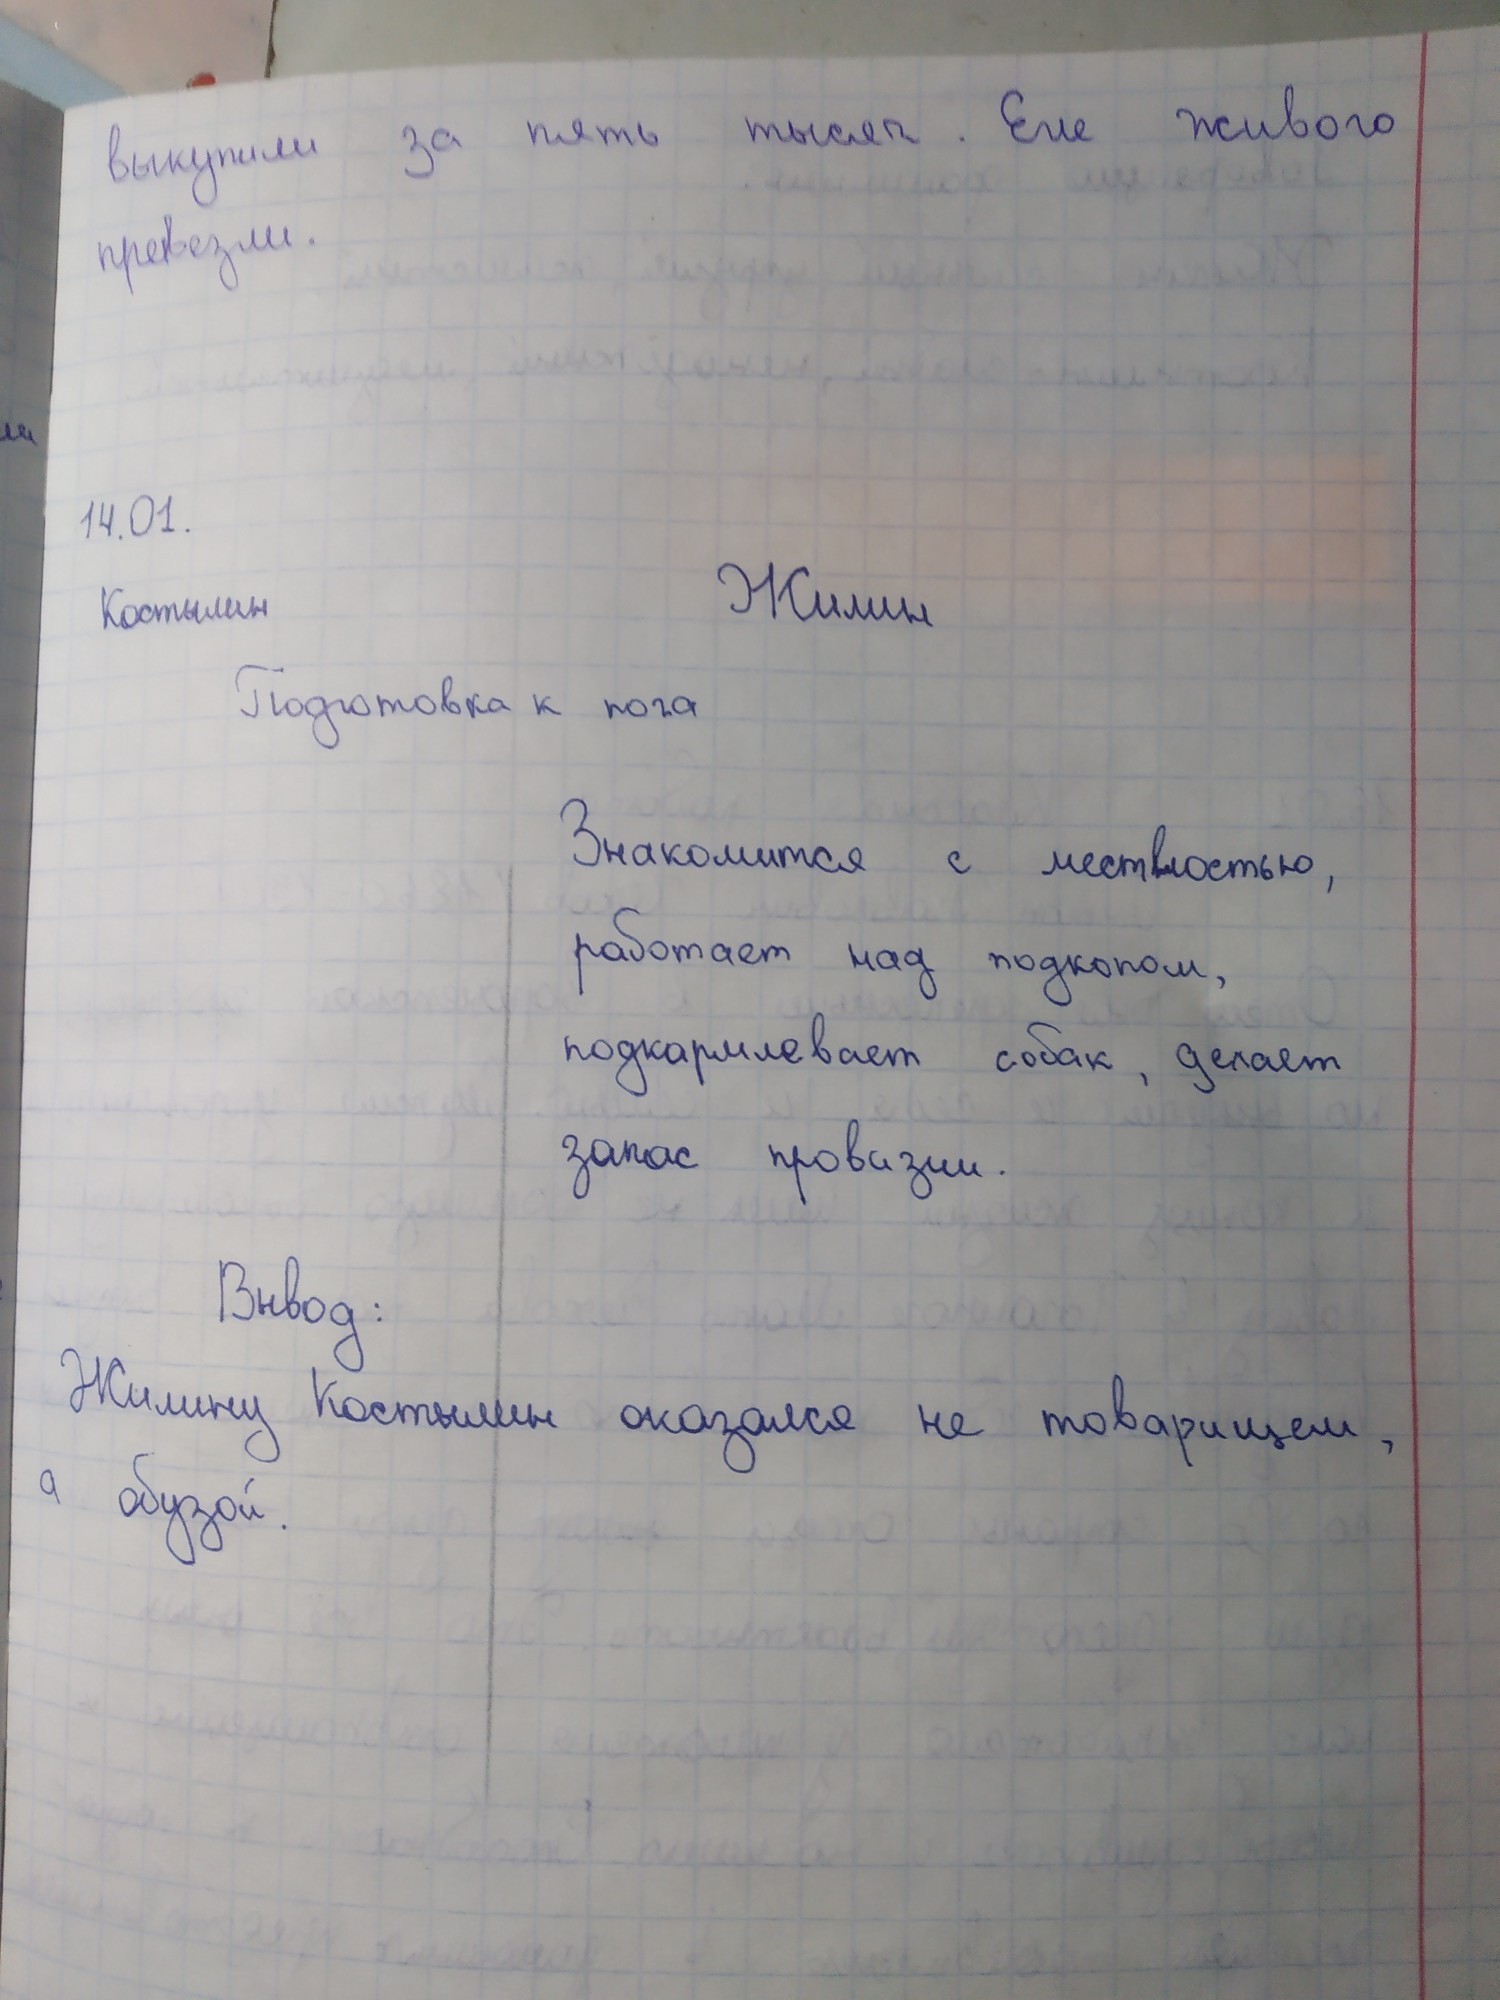 выкупили за пять тысяч. Еле живого
превезли.
14.01.
Костылин Жилин
Подготовка к пога
Знакомится с местностью,
работает над подкопом,
подкармлевает собак, делает
запас провизии.
Вывод:
Жилину Костылин оказался не товарищем,
а обузой.